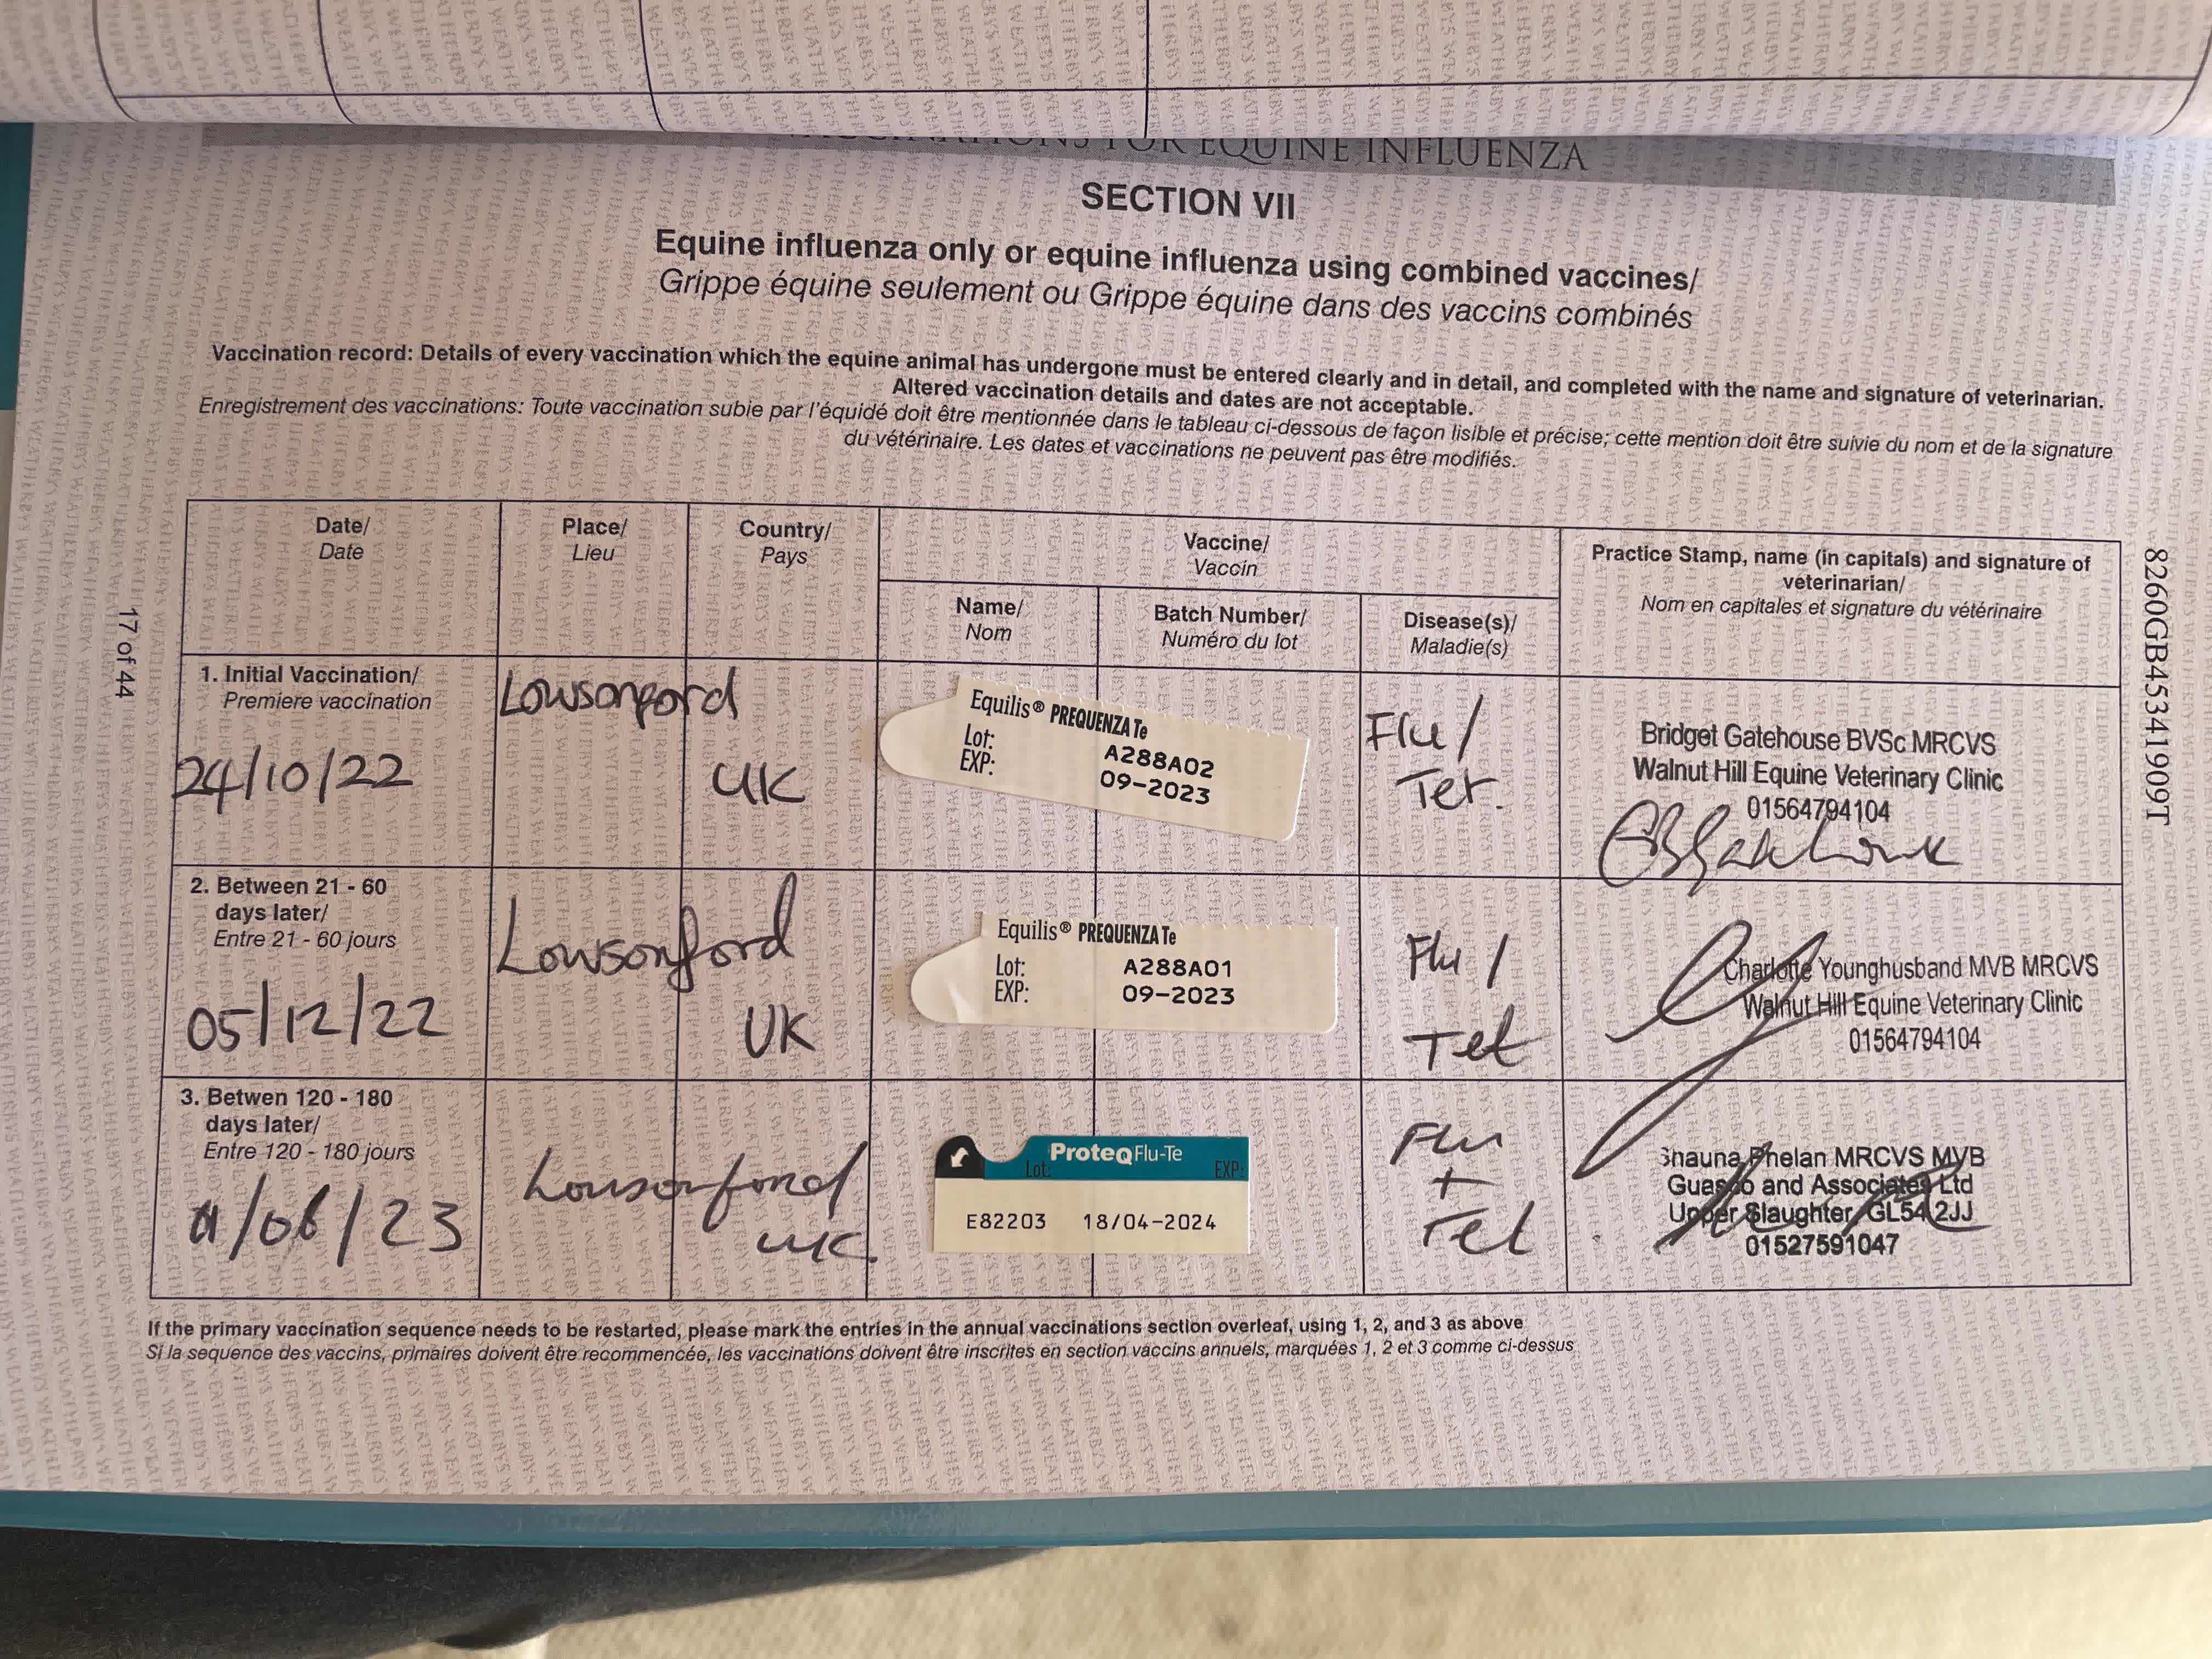 VACCINATIONS FOR EQUINE INFLUENZA
SECTION VII
Equine influenza only or equine influenza using combined vaccines/
Grippe équine seulement ou Grippe équine dans des vaccins combinés
Vaccination record: Details of every vaccination which the equine animal has undergone must be entered clearly and in detail, and completed with the name and signature of veterinarian.
Altered vaccination details and dates are not acceptable.
Enregistrement des vaccinations: Toute vaccination subie par l'équidé doit être mentionnée dans le tableau ci-dessous de façon lisible et précise; cette mention doit être suivie du nom et de la signature
du vétérinaire. Les dates et vaccinations ne peuvent pas être modifiés.
Date/
Date
Place/
Lieu
Country/
Pays
Vaccine/
Vaccin
Name/
Nom
Batch Number/
Numéro du lot
Disease(s)/
Maladie(s)
Practice Stamp, name (in capitals) and signature of
veterinarian/
Nom en capitales et signature du vétérinaire
1. Initial Vaccination/
Premiere vaccination
24/10/22
Lowsonford
UK
Equilis® PREQUENZA Te
Lot: A288A02
EXP: 09-2023
Flu/
Tet.
Bridget Gatehouse BVSc MRCVS
Walnut Hill Equine Veterinary Clinic
01564794104
2. Between 21 - 60
days later/
Entre 21 - 60 jours
05/12/22
Lowsonford
UK
Equilis® PREQUENZA Te
Lot: A288A01
EXP: 09-2023
Flu /
Tet
Charlotte Younghusband MVB MRCVS
Walnut Hill Equine Veterinary Clinic
01564794104
3. Betwen 120 - 180
days later/
Entre 120 - 180 jours
/23
Lowsonford
UK
ProteqFlu-Te
Lot: EXP:
E82203 18/04-2024
Flu
+
Tet
Shauna Phelan MRCVS MVB
Guasco and Associates Ltd
Upper Slaughter, GL54 2JJ
01527591047
If the primary vaccination sequence needs to be restarted, please mark the entries in the annual vaccinations section overleaf, using 1, 2, and 3 as above
Si la sequence des vaccins, primaires doivent être recommencée, les vaccinations doivent être inscrites en section vaccins annuels, marquées 1, 2 et 3 comme ci-dessus
17 of 44
8260GB45341909T